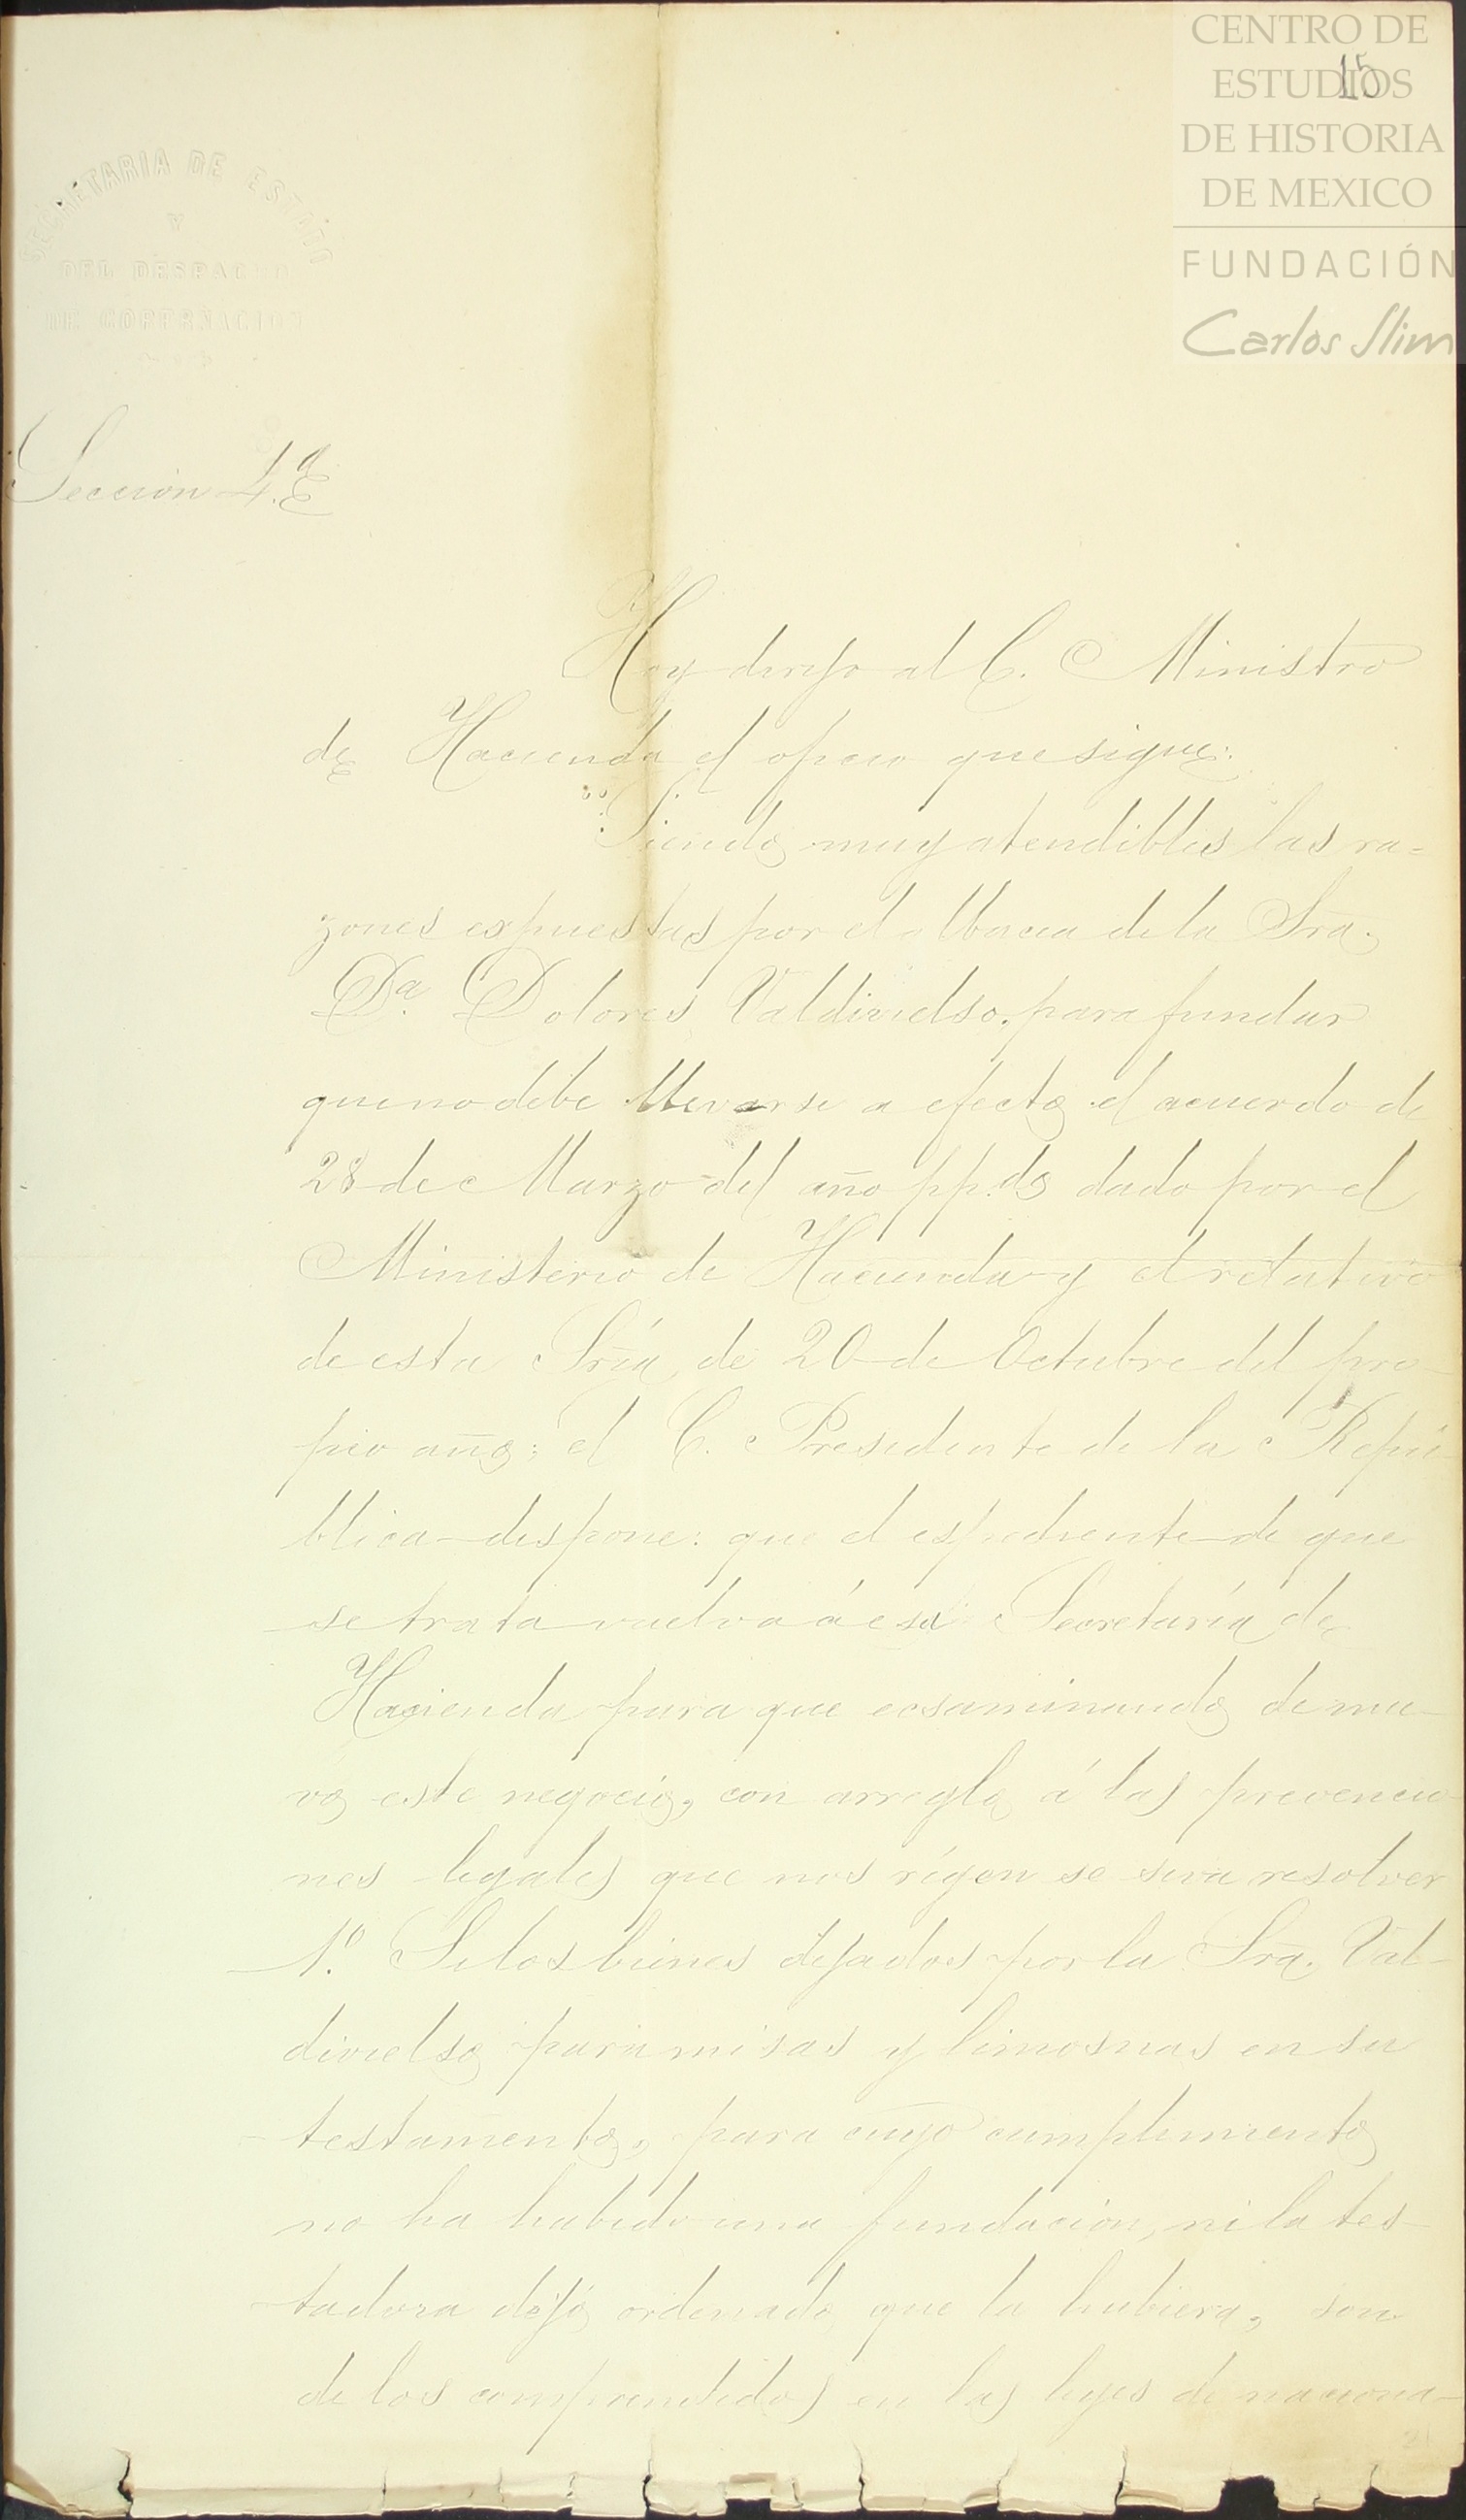 CENTRO DE
ESTUDIOS
DE HISTORIA
DE MEXICO
FUNDACIÓN
Carlos Slim
15
SECRETARIA DE ESTADO
Y
DEL DESPACHO
DE GOBERNACION
Sección 4.ª
Hoy dirijo al C. Ministro
de Hacienda el oficio que sigue:
"Siendo muy atendibles las ra-
zones expuestas por el albacea de la Sra.
Da. Dolores Valdivielso, para fundar
que no debe llevarse a efecto el acuerdo de
28 de Marzo del año pp.do dado por el
Ministerio de Hacienda y el relativo
de esta Sría, de 20 de Octubre del pro-
pio año; el C. Presidente de la Repú-
blica dispone: que el espediente de que
se trata vuelva á esa Secretaría de
Hacienda para que ecsaminando de nue-
vo este negocio, con arreglo á las prevencio-
nes legales que nos rigen se sirva resolver
1.º Si los bienes dejados por la Sra. Val-
divielso para misas y limosnas en su
testamento, para cuyo cumplimiento
no ha habido una fundación, ni la tes-
tadora dejó ordenado que la hubiera, son
de los comprendidos en las leyes de naciona-